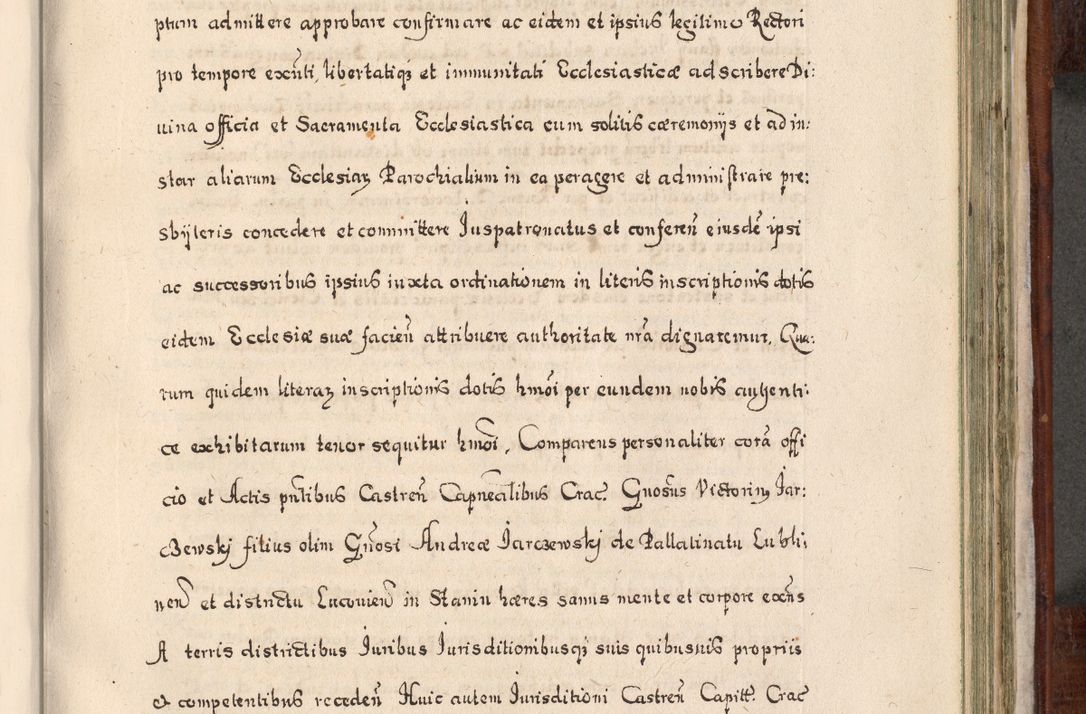 ptum admittere approbare confirmare ac eidem et ipsius legitimo Rectori
pro tempore exñti, libertatiq3 et immunitati Ecclesiasticæ adscribere Di:
uina officia et Sacramenta Ecclesiastica cum solitis cæremonijs et ad in:
star aliarum Ecclesiaꝝ Parochialium in ea peragere et administrare pre:
sbijteris concedere et committere Iuspatronatus et confereñ eiusdẽ ipsi
ac successoribus ipsius iuxta ordinationem in literis inscriptionis dotis
eidem Ecclesiæ suæ facieñ attribuere authoritate nrã dignaremur, Qua:
rum quidem literaꝝ inscriptionis dotis hmõi per eundem nobis authenti:
ce exhibitarum tenor sequitur hmõi, Comparens personaliter corã offi
cio et Actis pñtibus Castreñ Capnẽalibus Crac: Gnosus Victorinꝰ Jar:
czewskj filius olim Gñosi Andreæ Jarczewskj de Pallatinatu Lubli:
neñ et districtu Lucovieñ in Staniu hæres sanus mente et corpore exẽns
A terris districtibus Iuribus Iurisditionibusq3 suis quibusuis propriis
et competentibus recedeñ Huic autem Iurisditioni Castreñ Capitt: Crac